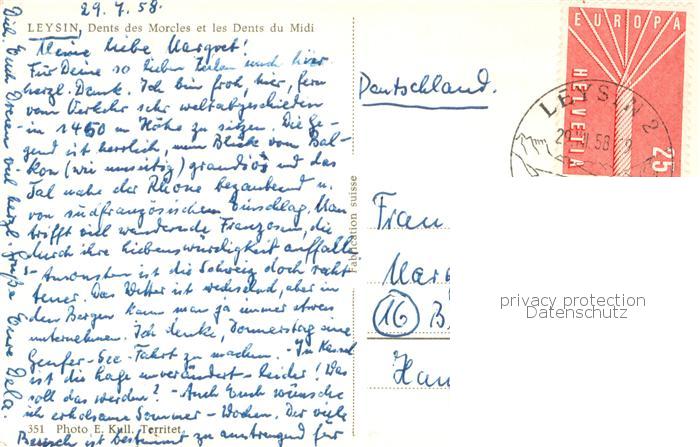 29.7.58.
LEYSIN, Dents des Morcles et les Dents du Midi
Meine liebe Margret!
Für Deine so lieben Zeilen noch hier
herzl. Dank. Ich bin froh, hier, fern
vom Verkehr sehr weltabgeschieden
in 1450 m Höhe zu sitzen. Die Ge-
gend ist herrlich, mein Blick vom Bal-
kon (wie umseitig) grandios und das
Tal nahe der Rhone bezaubernd u.
von südfranzösischem Einschlag. Man
trifft viel wandernde Franzosen, die
durch ihre Liebenswürdigkeit auffallen
Ansonsten ist die Schweiz doch recht
teuer. Das Wetter ist wechselnd, aber in
den Bergen kann man ja immer etwas
unternehmen. Ich denke, Donnerstag eine
Genfer-See-Fahrt zu machen. - In Kassel
ist die Lage unverändert - leider! Was
soll das werden? - Auch Euch wünsche
ich erholsame Sommer-Wochen. Der viele
351 Photo E. Kull, Territet
Besuch ist bestimmt zu anstrengend für
Dich. Euch Dreien viel herzl. Grüße Eure Dela.
Fabrication suisse
Deutschland.
EUROPA
HELVETIA
25
LEYSIN 2
Frau
(16)
Han
privacy protection
Datenschutz